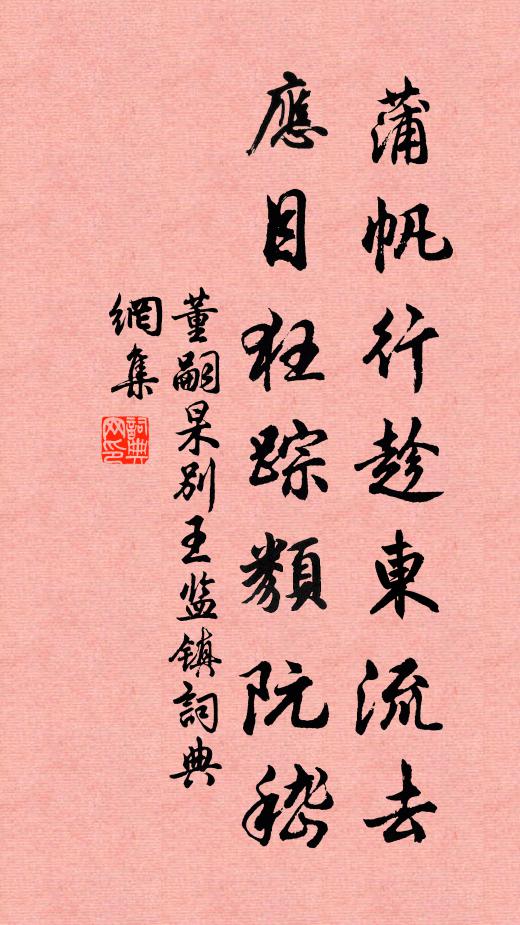 蒲帆行趁東流去
應目狂踪類阮嵇
董嗣杲別王监镇詞典
網集
詞典
网印